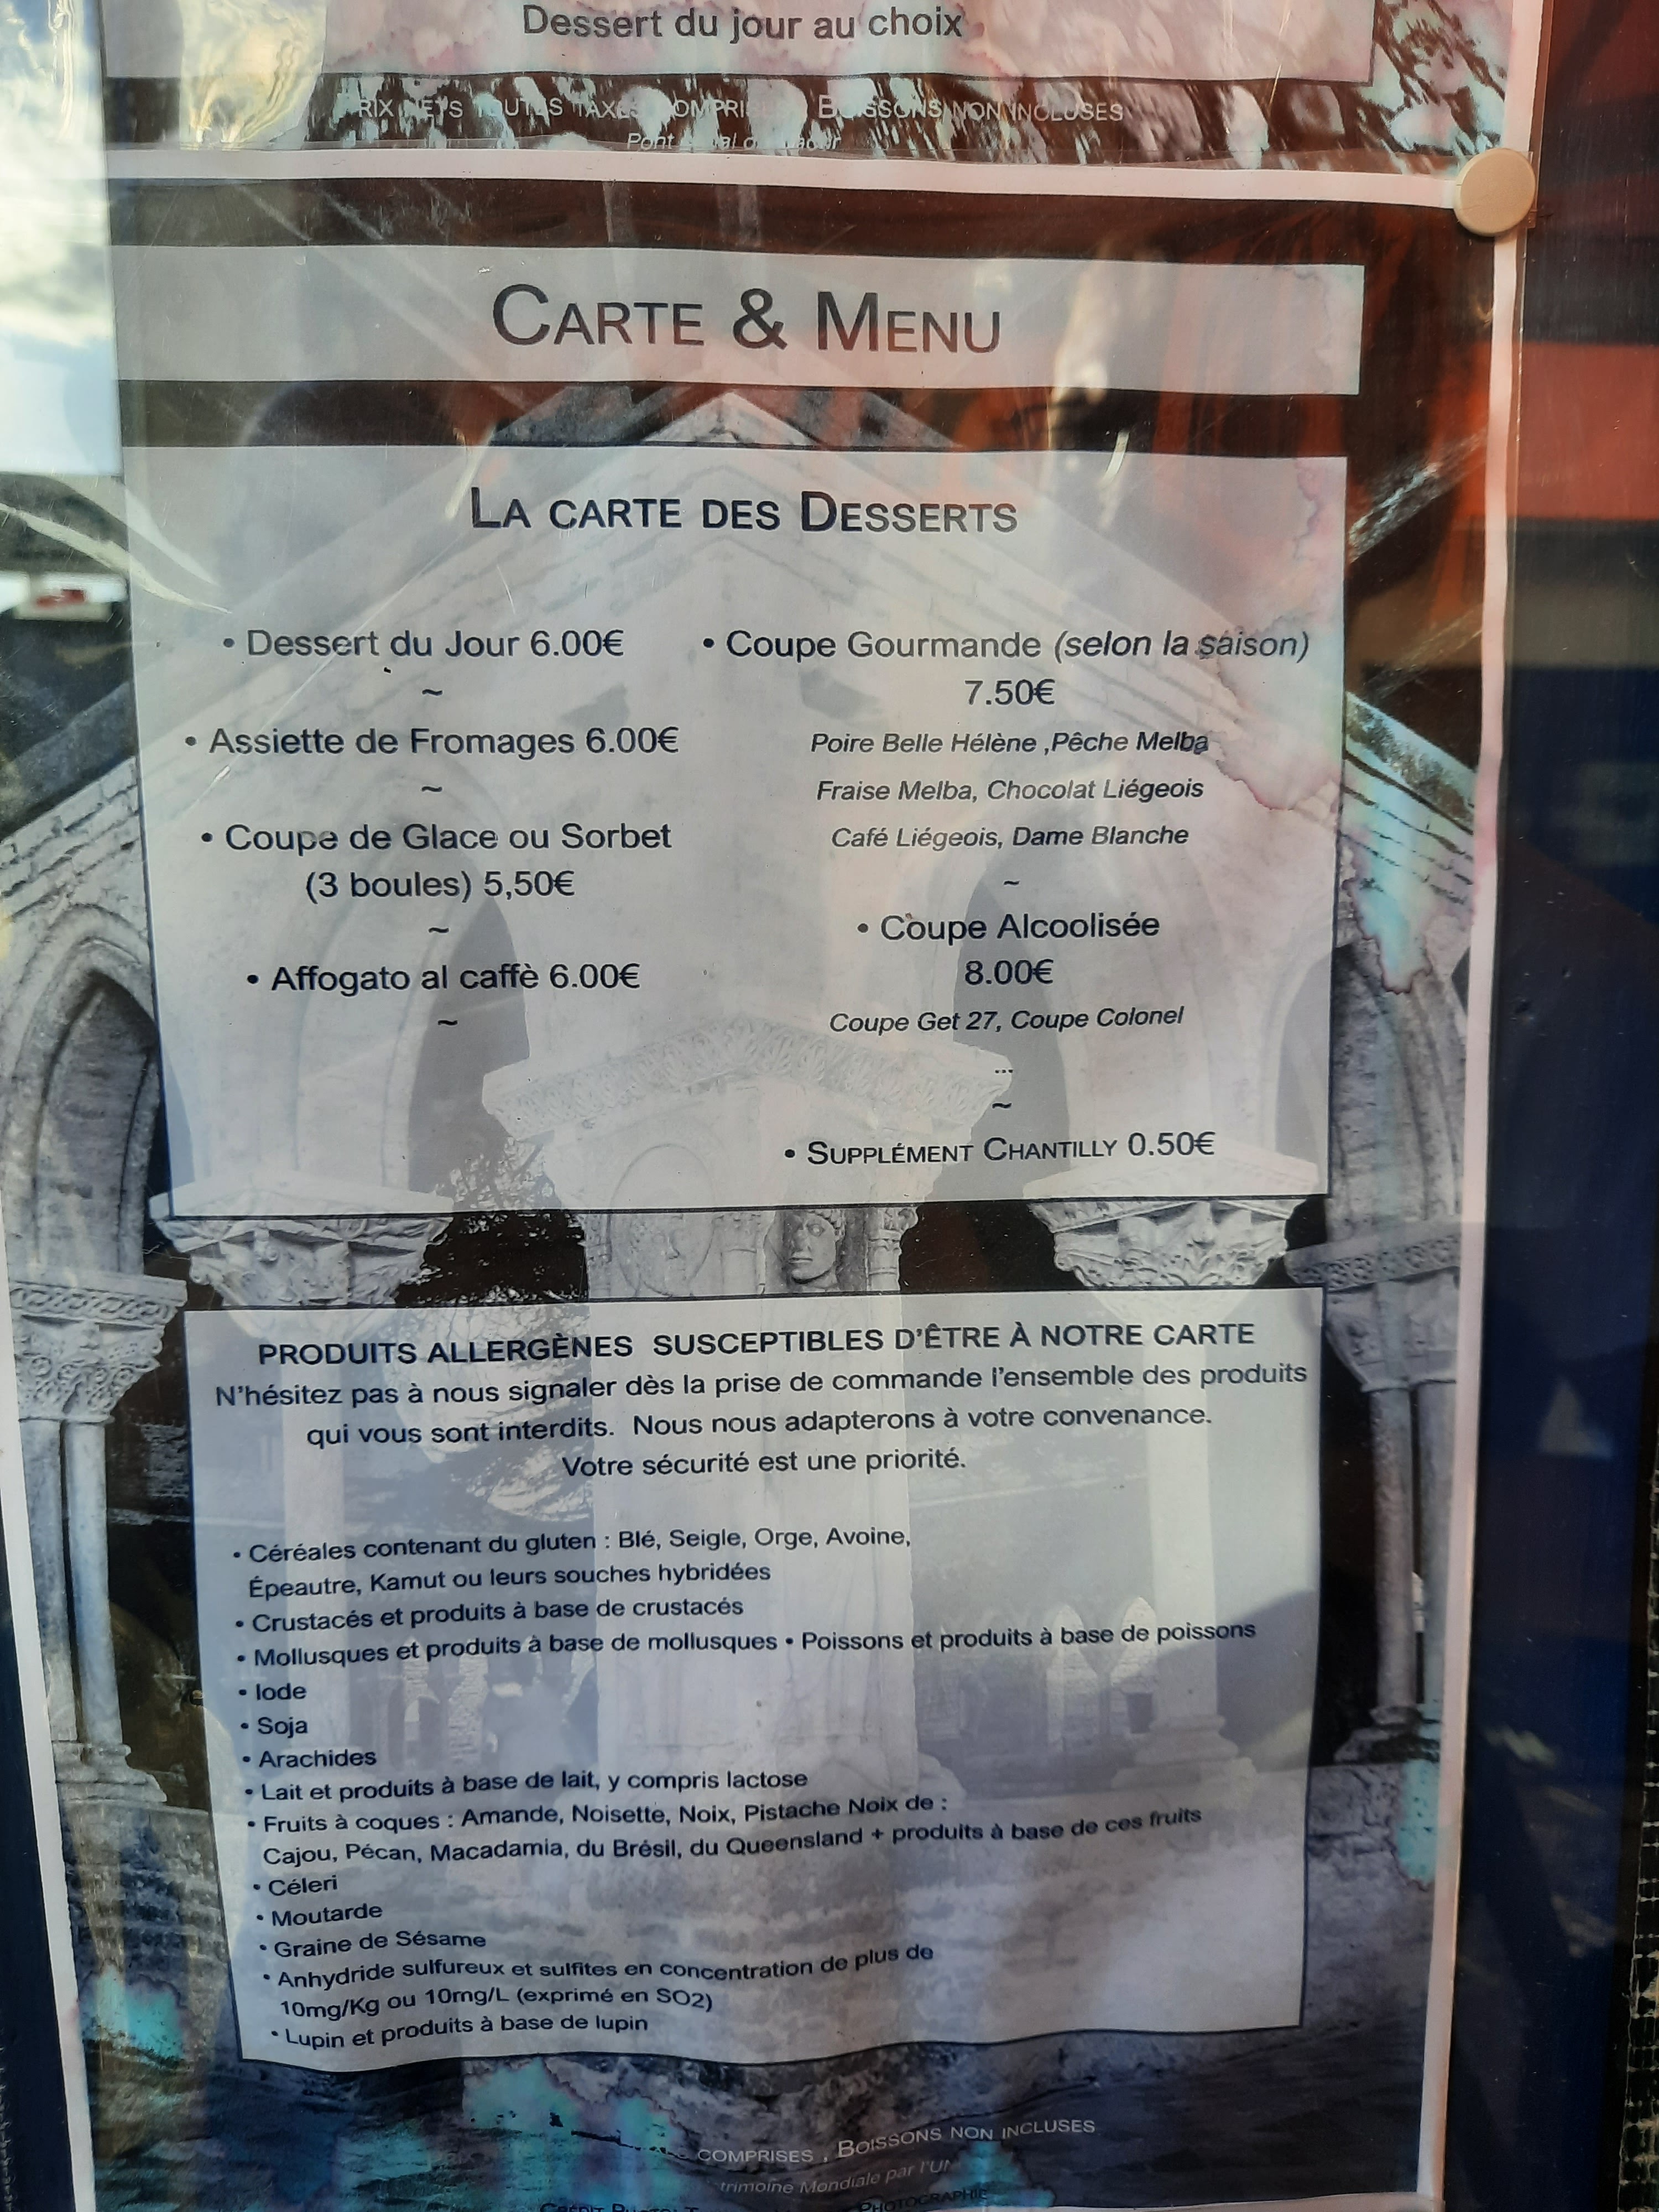 Dessert du jour au choix
TOUTES TAXES COMPRISES BOISSONS NON INCLUSES
Pont
CARTE & MENU
LA CARTE DES DESSERTS
• Dessert du Jour 6.00€
~
• Assiette de Fromages 6.00€
~
• Coupe de Glace ou Sorbet
(3 boules) 5,50€
~
• Affogato al caffè 6.00€
~
• Coupe Gourmande (selon la saison)
7.50€
Poire Belle Hélène ,Pêche Melba
Fraise Melba, Chocolat Liégeois
Café Liégeois, Dame Blanche
~
• Coupe Alcoolisée
8.00€
Coupe Get 27, Coupe Colonel
...
~
• SUPPLÉMENT CHANTILLY 0.50€
PRODUITS ALLERGÈNES SUSCEPTIBLES D'ÊTRE À NOTRE CARTE
N'hésitez pas à nous signaler dès la prise de commande l'ensemble des produits
qui vous sont interdits. Nous nous adapterons à votre convenance.
Votre sécurité est une priorité.
• Céréales contenant du gluten : Blé, Seigle, Orge, Avoine,
Épeautre, Kamut ou leurs souches hybridées
• Crustacés et produits à base de crustacés
• Mollusques et produits à base de mollusques • Poissons et produits à base de poissons
• Iode
• Soja
• Arachides
• Lait et produits à base de lait, y compris lactose
• Fruits à coques : Amande, Noisette, Noix, Pistache Noix de :
Cajou, Pécan, Macadamia, du Brésil, du Queensland + produits à base de ces fruits
• Céleri
• Moutarde
• Graine de Sésame
• Anhydride sulfureux et sulfites en concentration de plus de
10mg/Kg ou 10mg/L (exprimé en SO2)
• Lupin et produits à base de lupin
COMPRISES , BOISSONS NON INCLUSES
Mondiale par l'UN
PHOTOGRAPHIE